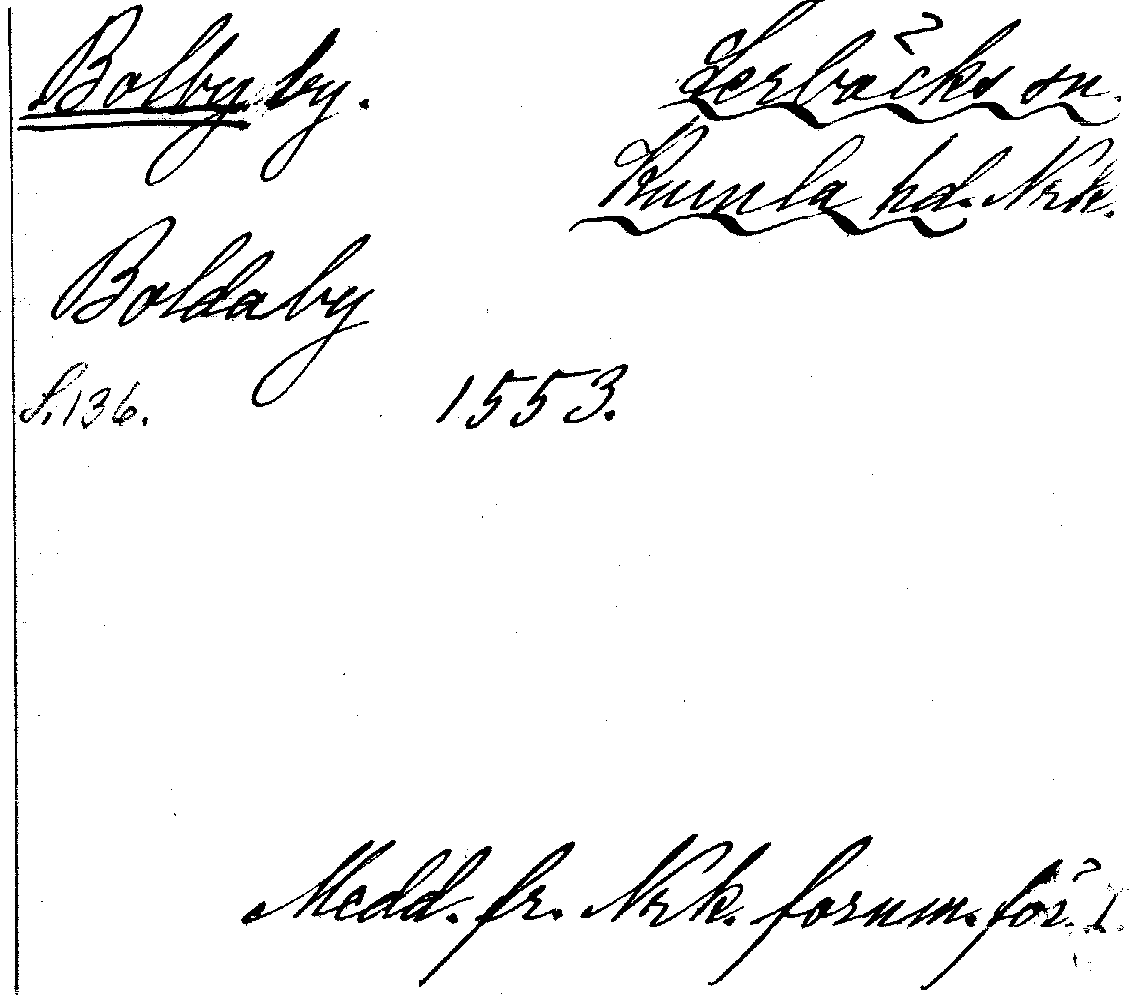 Bolby by. Lerbäcks sn.
Kumla hd. Nrk.
Boldaby
S. 136. 1553.
Medd. fr. Nrk. fornm. för. I.